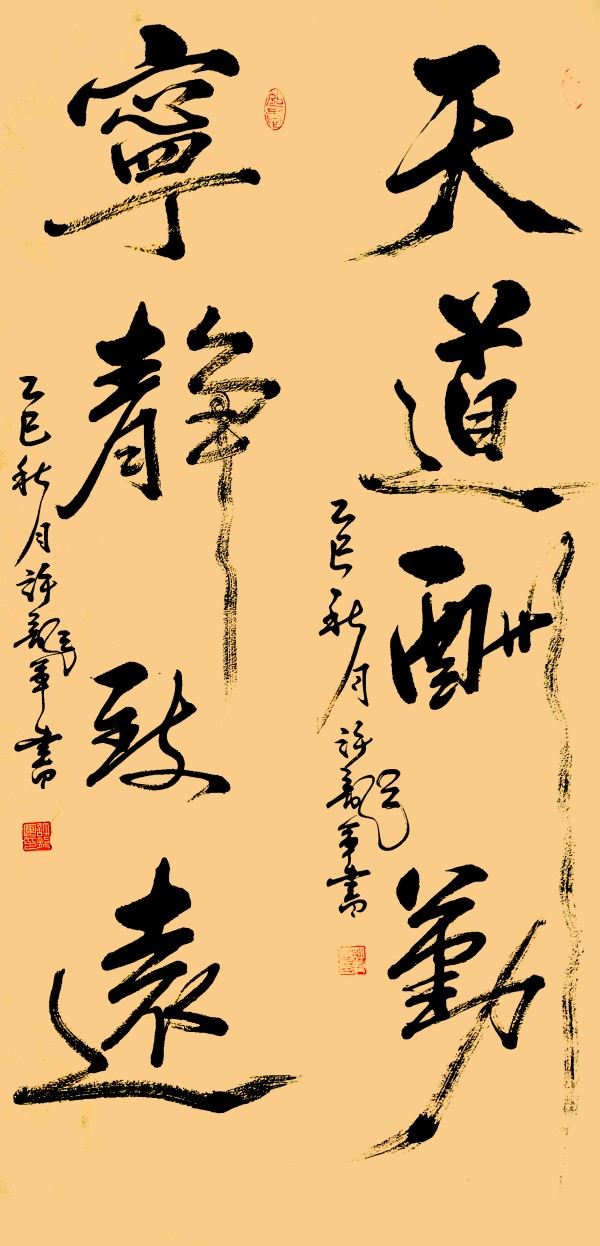 天道酬勤
乙巳秋月许龙军书
寧靜致遠
乙巳秋月许龙军书